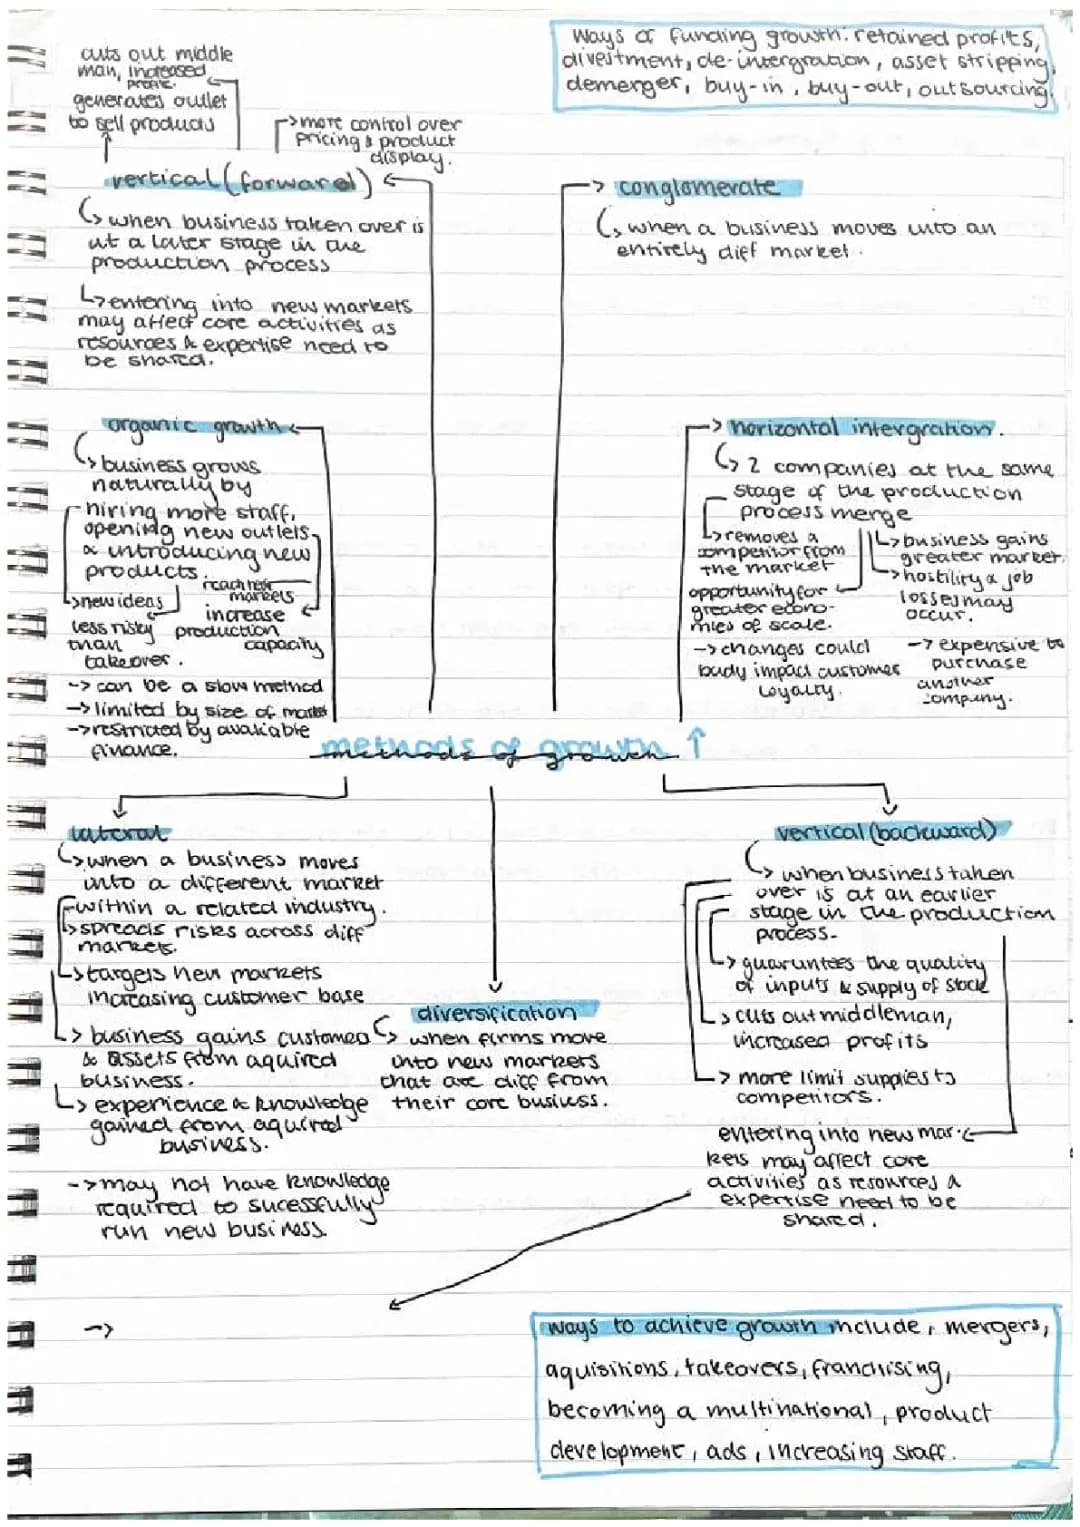 Ways of funding growth. retained profits,
divestment, de-intergration, asset stripping,
demerger, buy-in, buy-out, outsourcing.
cuts out middle
man, increased
profit.
generates outlet
to sell products
more control over
pricing & product
display.
vertical (forward)
when business taken over is
at a later stage in the
production process
entering into new markets
may affect core activities as
resources & expertise need to
be shared.
conglomerate
when a business moves into an
entirely diff market.
organic growth
business grows
naturally by
hiring more staff,
opening new outlets,
& introducing new
products.
reach new
markets
new ideas
increase
production
capacity
less risky
than
takeover.
-> can be a slow method
-> limited by size of market
-> restricted by avaliable
finance.
horizontal intergration.
2 companies at the same
stage of the production
process merge
removes a
competitor from
the market
business gains
greater market.
hostility & job
losses may
occur.
opportunity for
greater econo-
mies of scale.
-> changes could
badly impact customer
loyalty.
-> expensive to
purchase
another
company.
methods of growth ↑
lateral
when a business moves
into a different market
within a related industry.
spreads risks across diff
markets.
targets new markets
increasing customer base
business gains customer
& assets from aquired
business.
experience & knowledge
gained from aquired
business.
-> may not have knowledge
required to sucessfully
run new business.
diversification
when firms move
into new markets
that are diff from
their core business.
vertical (backward)
when business taken
over is at an earlier
stage in the production
process.
guaruntees the quality
of inputs & supply of stock
cuts out middleman,
increased profits
more limit supplies to
competitors.
entering into new mar-
kets may affect core
activities as resources &
expertise need to be
shared.
->
ways to achieve growth include, mergers,
aquisitions, takeovers, franchising,
becoming a multinational, product
development, ads, increasing staff.